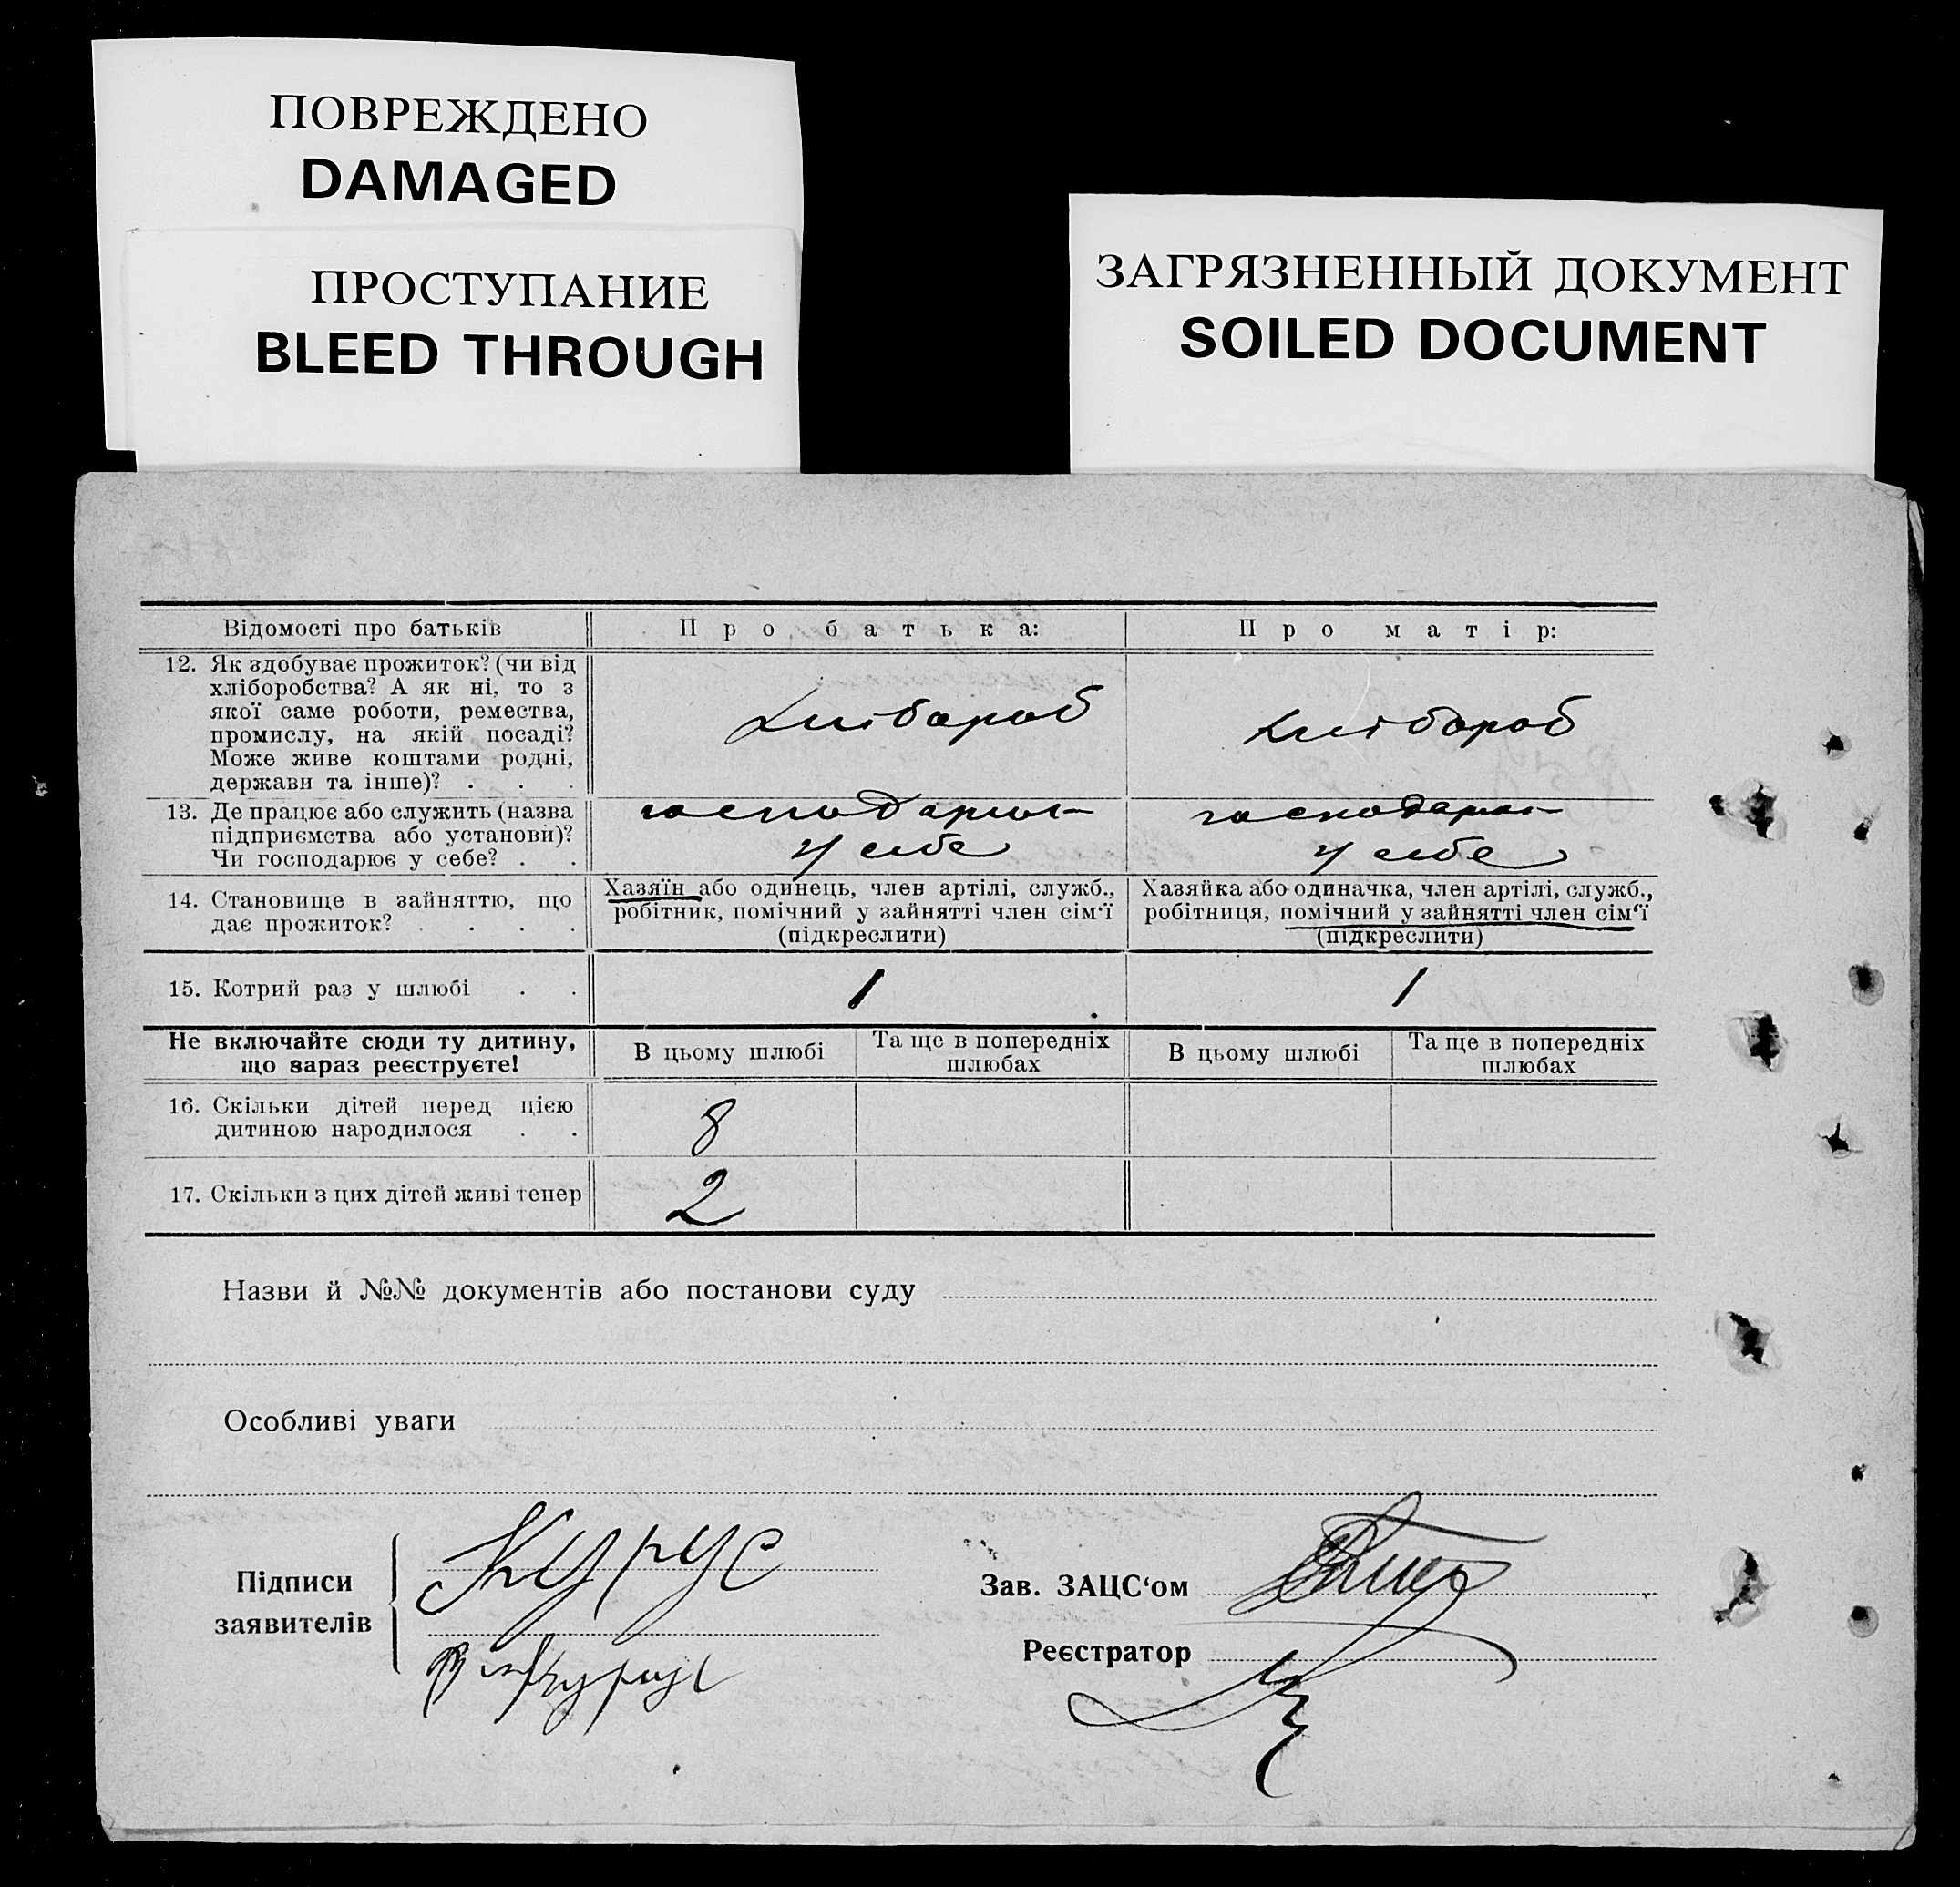 ПОВРЕЖДЕНО
DAMAGED
ПРОСТУПАНИЕ
BLEED THROUGH
ЗАГРЯЗНЕННЫЙ ДОКУМЕНТ
SOILED DOCUMENT
Відомості про батьків
Про батька:
Про матір:
12. Як здобуває прожиток? (чи від
хліборобства? А як ні, то з
якої саме роботи, ремества,
промислу, на якій посаді?
Може живе коштами родні,
держави та інше)? . . .
Хлібороб
Хлібороб
13. Де працює або служить (назва
підприємства або установи)?
Чи господарює у себе? . .
господарює
у себе
господарює
у себе
14. Становище в зайняттю, що
дає прожиток? . . . .
Хазяїн або одинець, член артілі, служб.,
робітник, помічний у зайнятті член сім'ї
(підкреслити)
Хазяйка або одиначка, член артілі, служб.,
робітниця, помічний у зайнятті член сім'ї
(підкреслити)
15. Котрий раз у шлюбі . .
1
1
Не включайте сюди ту дитину,
що зараз реєструєте!
В цьому шлюбі
Та ще в попередніх
шлюбах
В цьому шлюбі
Та ще в попередніх
шлюбах
16. Скільки дітей перед цією
дитиною народилося . .
8
17. Скільки з цих дітей живі тепер
2
Назви й №№ документів або постанови суду
Особливі уваги
Підписи
заявителів
Курус
Зав. ЗАЦС'ом
Реєстратор